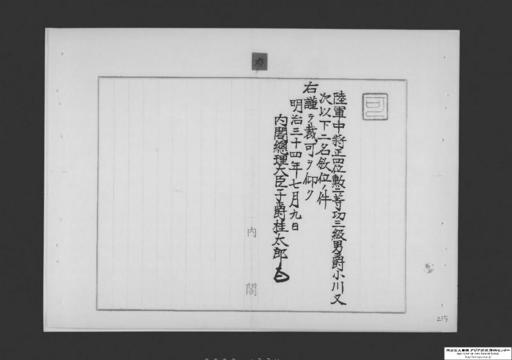 可
陸軍中将正四位勲二等功三級男爵小川又
次以下二名叙位ノ件
右謹テ裁可ヲ仰ク
明治三十四年七月九日
内閣総理大臣子爵桂太郎
内閣